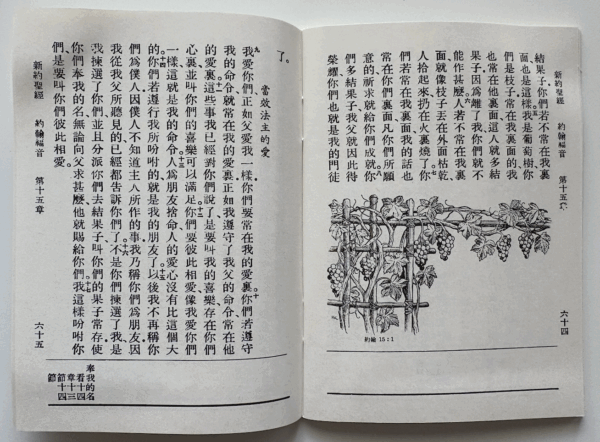 新約聖經　約翰福音　第十五章　六十四
結果子、你們若不常在我裏
面也是這樣。五我是葡萄樹、你
們是枝子、常在我裏面的、我
也常在他裏面、這人就多結
果子、因爲離了我、你們就不
能作甚麼。六人若不常在我裏
面、就像枝子丟在外面枯乾、
人拾起來、扔在火裏燒了。七你
們若常在我裏面、我的話也
常在你們裏面、凡你們所願
意的、祈求就給你們成就。八你
們多結果子、我父就因此得
榮耀、你們也就是我的門徒
約翰 15：1
了。
當效法主的愛
九我愛你們、正如父愛我一樣、你們要常在我的愛裏。十你們若遵守
我的命令、就常在我的愛裏、正如我遵守了我父的命令、常在他
的愛裏。十一這些事我已經對你們說了、是要叫我的喜樂、存在你們
心裏、並叫你們的喜樂可以滿足。十二你們要彼此相愛、像我愛你們
一樣、這就是我的命令。十三人爲朋友捨命、人的愛心沒有比這個大
的。十四你們若遵行我所吩咐的、就是我的朋友了。十五以後我不再稱你
們爲僕人、因僕人不知道主人所作的事、我乃稱你們爲朋友、因
我從我父所聽見的、已經都告訴你們了。十六不是你們揀選了我、是
我揀選了你們、並且分派你們去結果子、叫你們的果子常存、使
你們奉我的名、無論向父求甚麼、他就賜給你們。十七我這樣吩咐你
們、是要叫你們彼此相愛。
奉我的名
看十四
章十三
節十四
節
新約聖經　約翰福音　第十五章　六十五